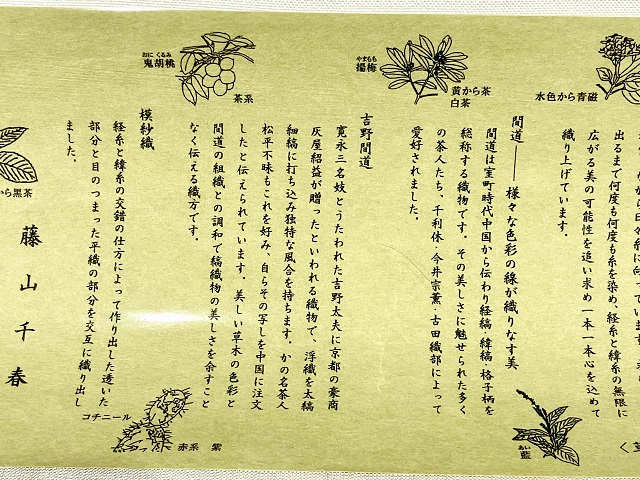 出るまで何度も何度も糸を染め、経糸と緯糸の無限に
広がる美の可能性を追い求め一本一本心を込めて
織り上げています。
間道――様々な色彩の線が織りなす美
間道は室町時代中国から伝わり経縞・緯縞・格子柄を
総称する織物です。その美しさに魅せられた多く
の茶人たち、千利休・今井宗薫・古田織部によって
愛好されました。
吉野間道
寛永三名妓とうたわれた吉野太夫に京都の豪商
灰屋紹益が贈ったといわれる織物で、浮織を太縞
細縞に打ち込み独特な風合を持ちます。かの名茶人
松平不昧もこれを好み、自らその写しを中国に注文
したと伝えられています。美しい草木の色彩と
間道の組織との調和で縞織物の美しさを余すこと
なく伝える織方です。
模紗織
経糸と緯糸の交錯の仕方によって作り出した透いた
部分と目のつまった平織の部分を交互に織り出し
ました。
藤山千春
水色から青磁
やまもも
楊梅
黄から茶
白茶
おにくるみ
鬼胡桃
茶系
から黒茶
あい
藍
コチニール
赤系 紫